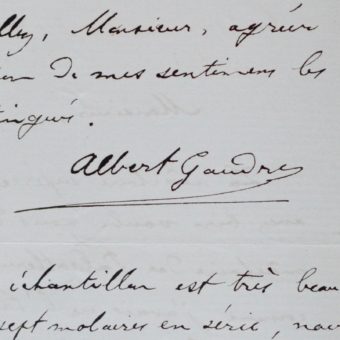 Monsieur, agréer
de mes sentimens les
tingués.
Albert Gaudry
échantillon est très beau
sept molaires en série, nou